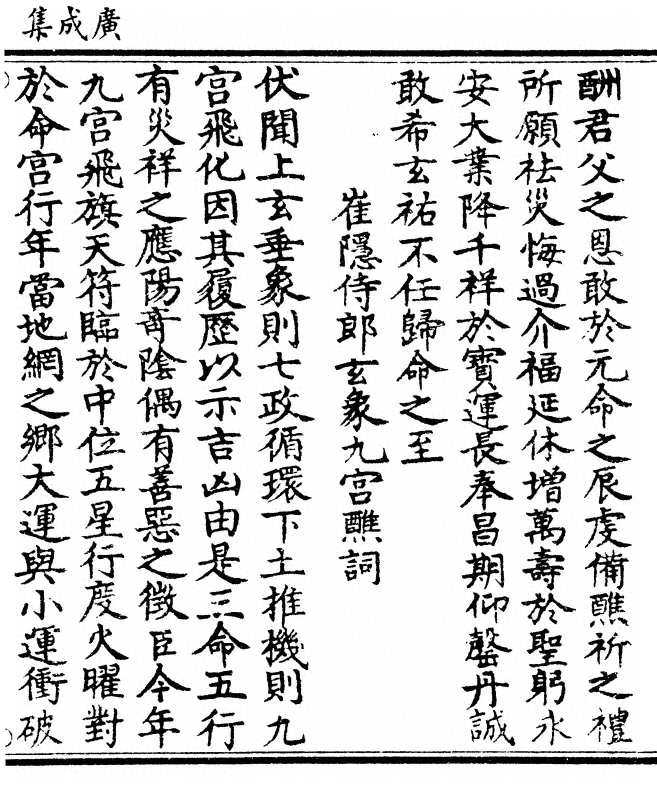 廣成集
酬君父之恩敢於元命之辰虔備醮祈之禮
所願祛災悔過介福延休增萬壽於聖躬永
安大業降千祥於寶運長奉昌期仰罄丹誠
敢希玄祐不任歸命之至
崔隱侍郎玄象九宮醮詞
伏聞上玄垂象則七政循環下土推機則九
宮飛化因其履歷以示吉凶由是三命五行
有災祥之應陽竒陰偶有善惡之徵臣今年
九宮飛旗天符臨於中位五星行度火曜對
於命宮行年當地網之鄉大運與小運衝破